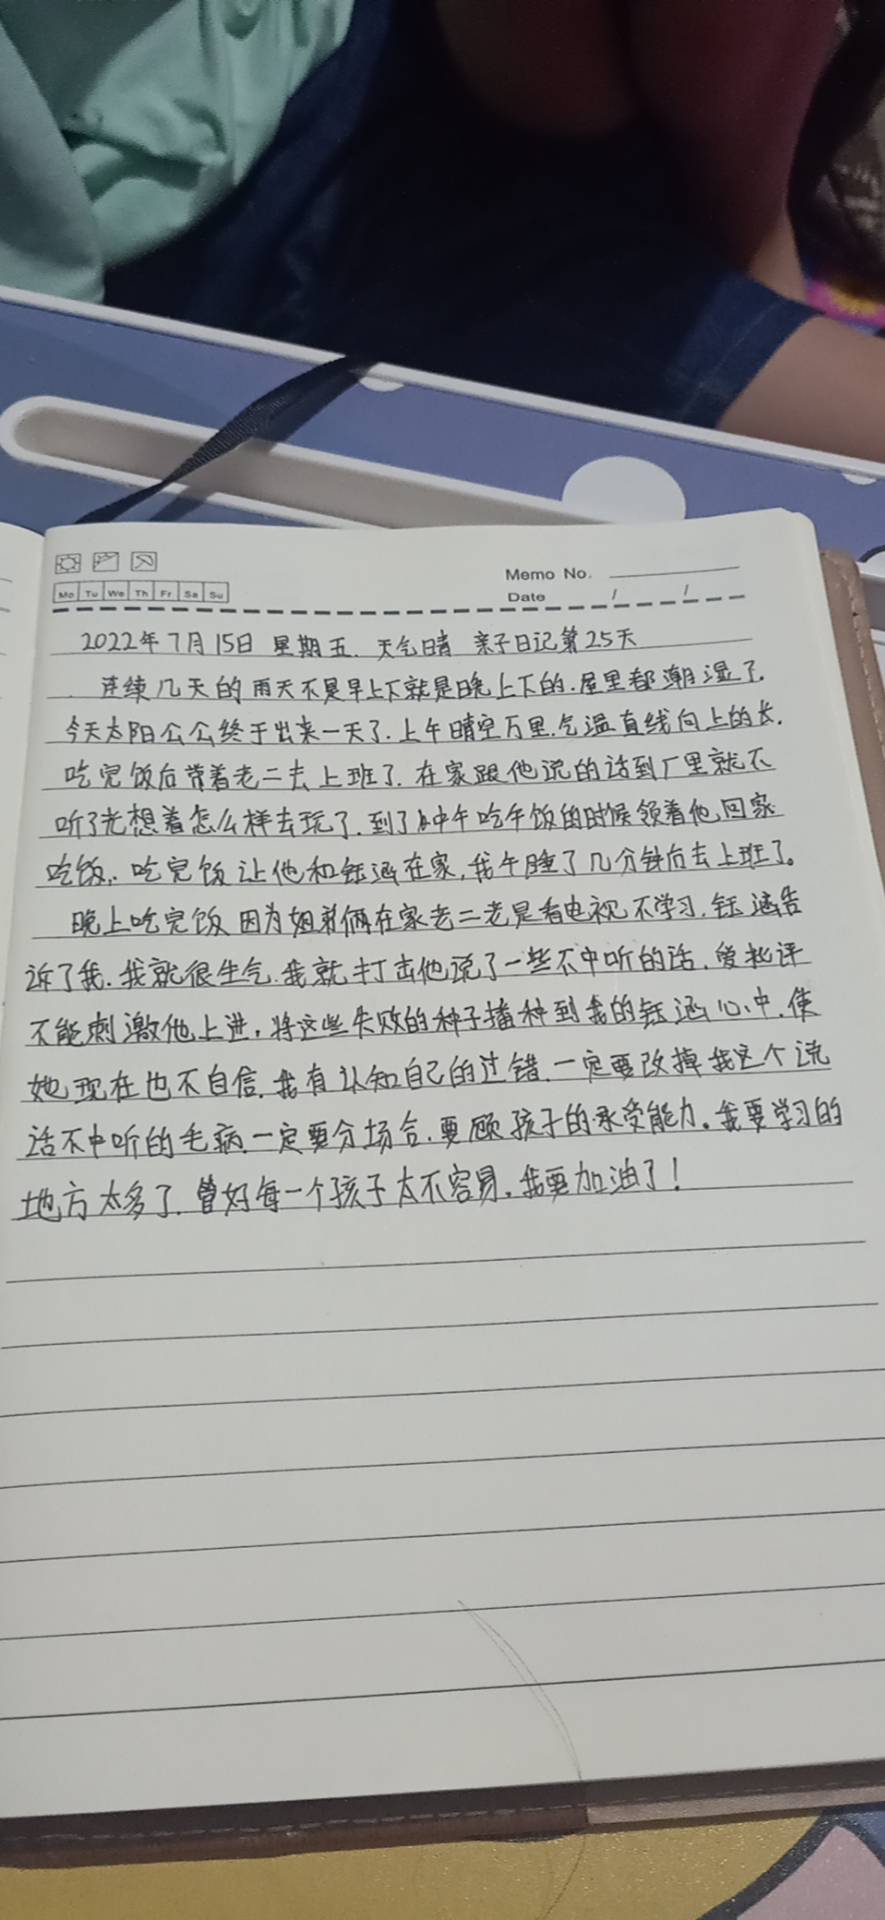 Memo No.
Mo Tu We Th Fr Sa Su
Date / /
2022年7月15日 星期五. 天气晴 亲子日记第25天
连续几天的雨天不是早上下就是晚上下的.屋里都潮湿了.
今天太阳公公终于出来一天了.上午晴空万里.气温直线向上的长.
吃完饭后带着老二去上班了.在家跟他说的话到厂里就不
听了光想着怎么样去玩了.到了中午吃午饭的时候领着他回家
吃饭.吃完饭让他和钰涵在家,我午睡了几分钟后去上班了。
晚上吃完饭因为姐弟俩在家老二老是看电视不学习.钰涵告
诉了我.我就很生气.我就打击他说了一些不中听的话.爱批评
不能刺激他上进,将这些失败的种子播种到我的钰涵心中.使
她现在也不自信.我有认知自己的过错.一定要改掉我这个说
话不中听的毛病.一定要分场合.要顾孩子的承受能力。我要学习的
地方太多了.管好每一个孩子太不容易.我要加油了!